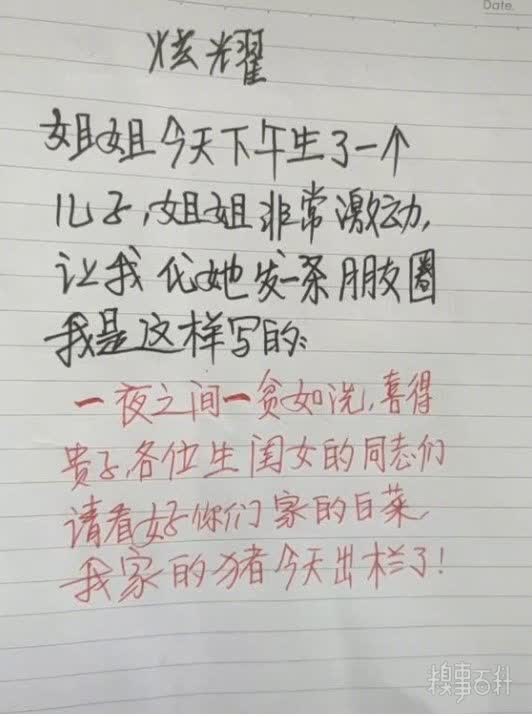 Date.
炫耀
姐姐今天下午生了一个
儿子,姐姐非常激动,
让我代她发一条朋友圈
我是这样写的:
一夜之间一贫如洗,喜得
贵子,各位生闺女的同志们
请看好你们家的白菜,
我家的猪今天出栏了!
糗事百科